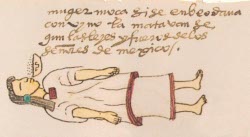 muger moça se enbeodava
con vyno la matavan
las leyes y fueros de los
señores de mexico